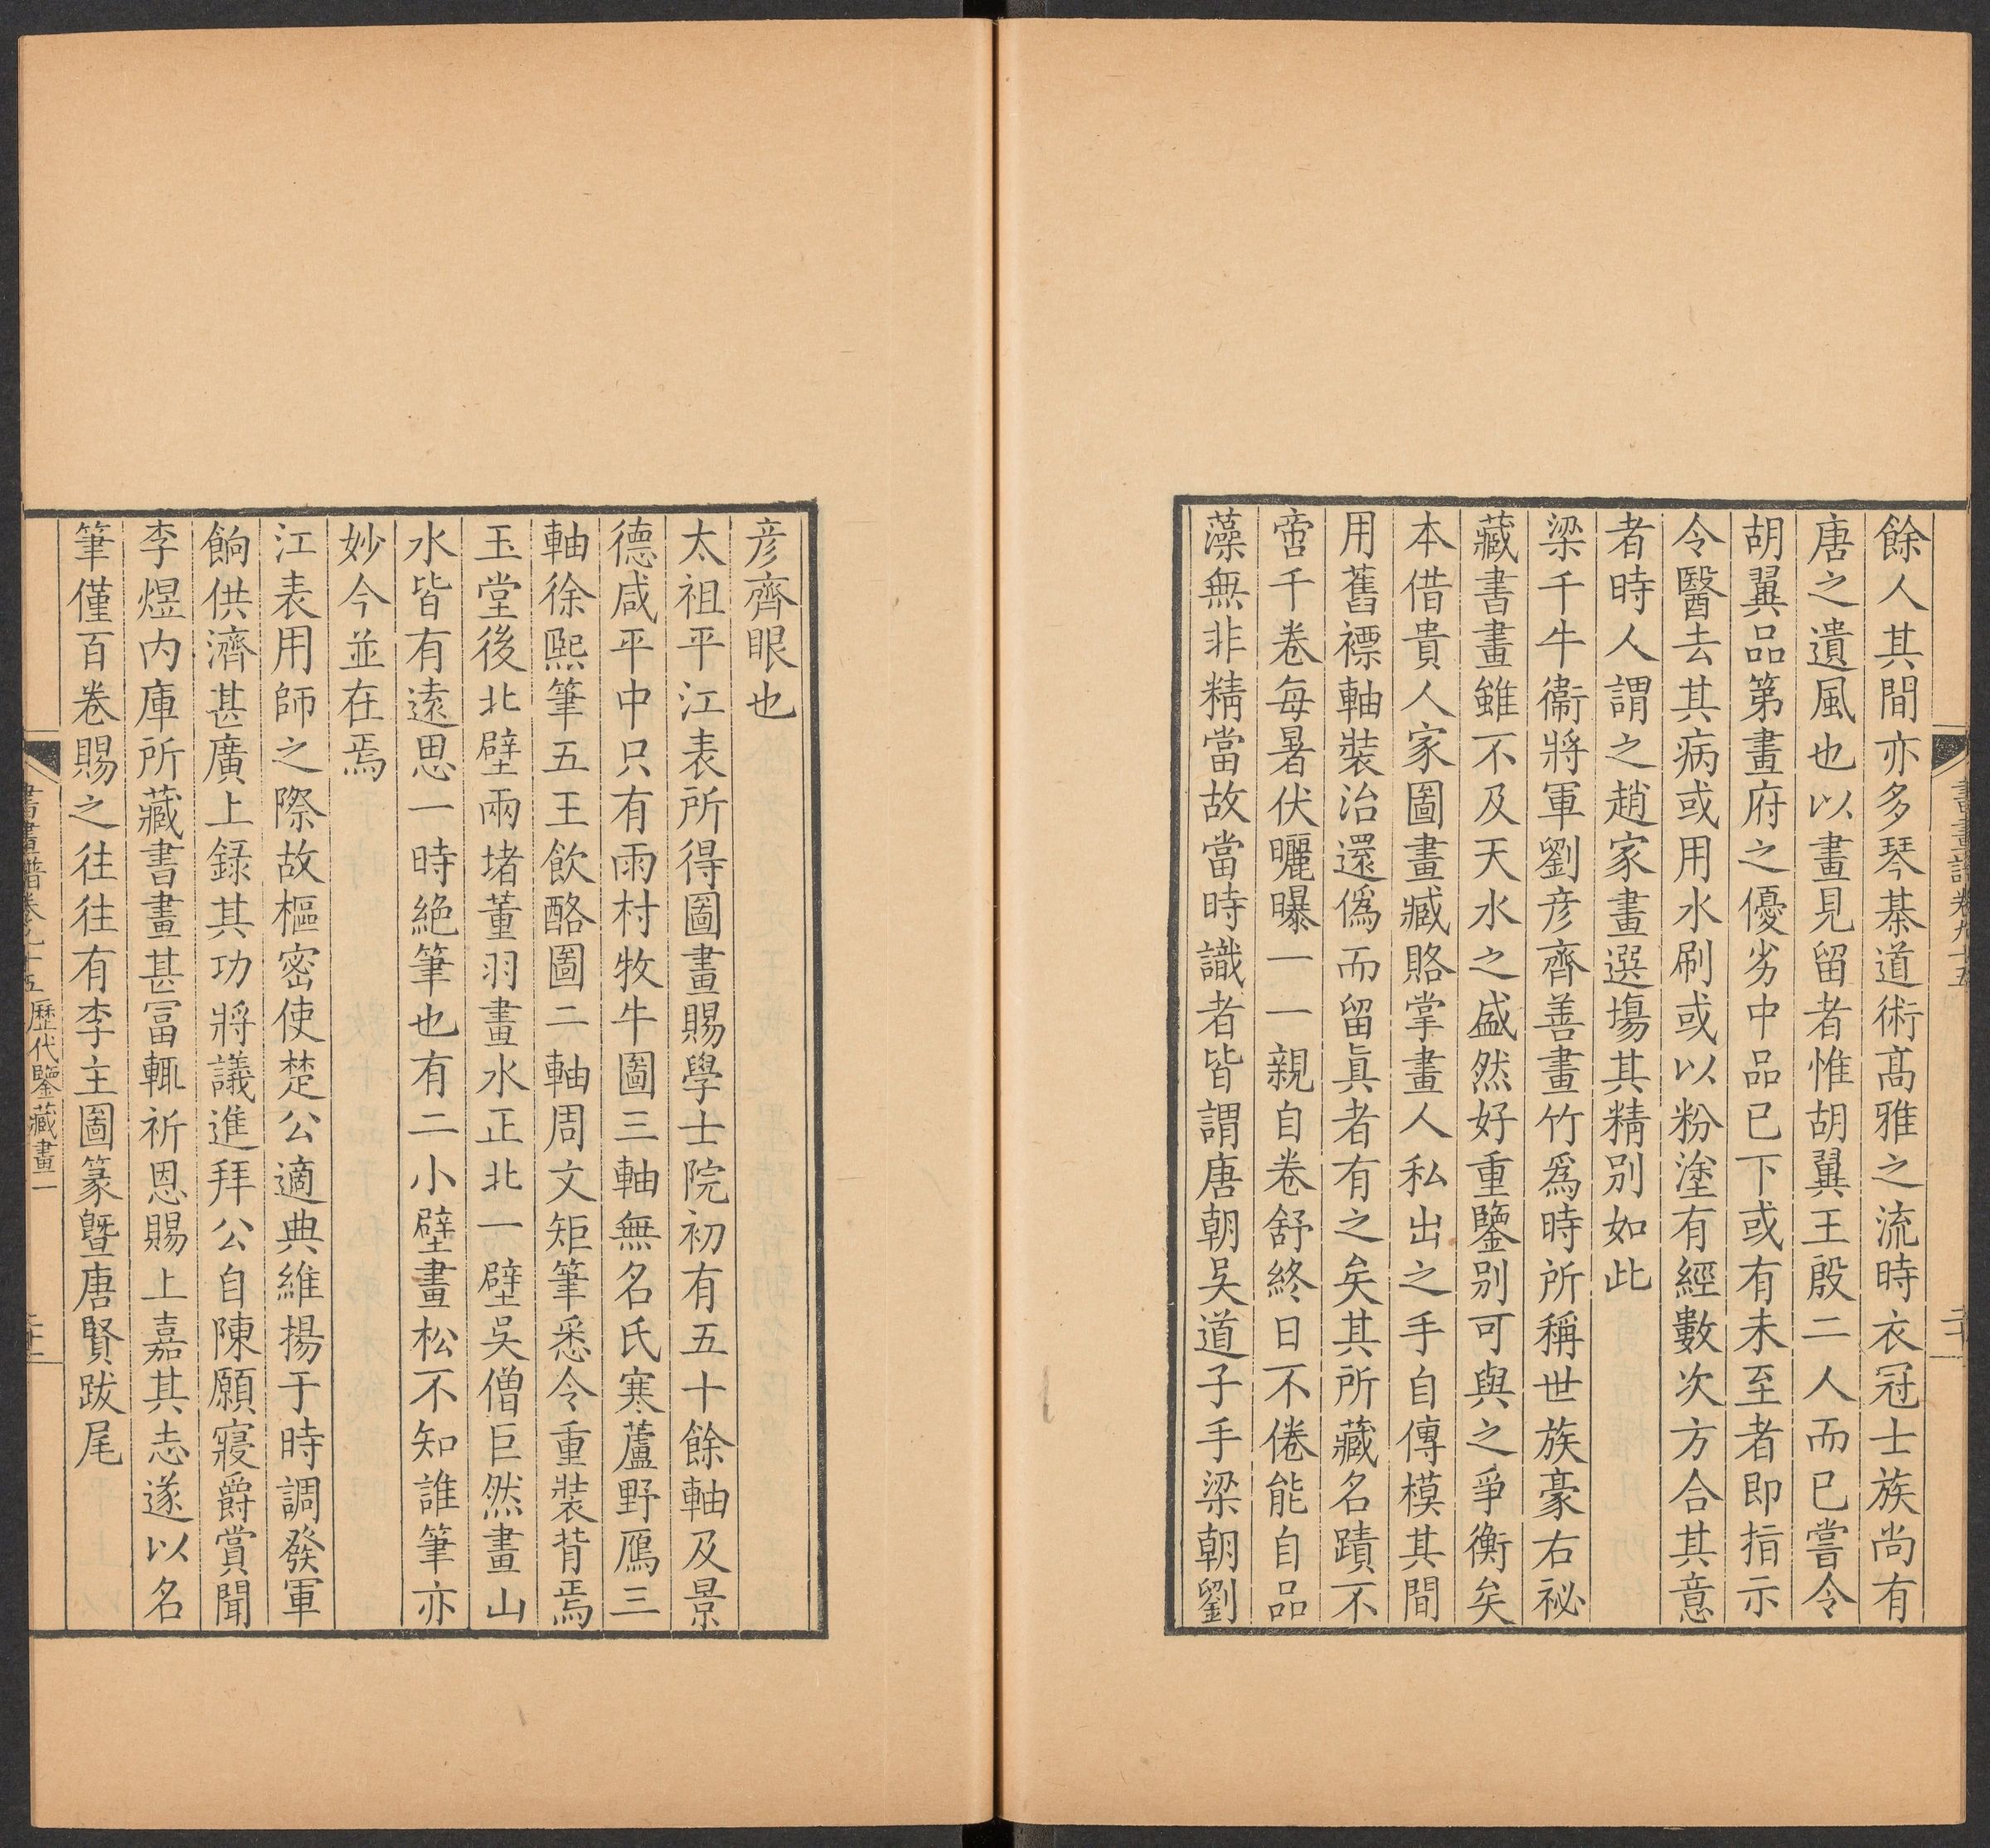 餘人其間亦多琴棊道術髙雅之流時衣冠士族尚有
唐之遺風也以畫見留者惟胡翼王殷二人而已嘗令
胡翼品第畫府之優劣中品已下或有未至者即指示
令醫去其病或用水刷或以粉塗有經數次方合其意
者時人謂之趙家畫選場其精別如此
梁千牛衞將軍劉彦齊善畫竹爲時所稱世族豪右祕
藏書畫雖不及天水之盛然好重鑒别可與之爭衡矣
本借貴人家圖畫臧賂掌畫人私出之手自傳模其間
用舊褾軸裝治還僞而留眞者有之矣其所藏名蹟不
啻千卷每暑伏曬曝一一親自卷舒終日不倦能自品
藻無非精當故當時識者皆謂唐朝吳道子手梁朝劉
書畫譜卷九十五
彦齊眼也
太祖平江表所得圖畫賜學士院初有五十餘軸及景
德咸平中只有雨村牧牛圖三軸無名氏寒蘆野鴈三
軸徐熙筆五王飲酪圖二軸周文矩筆悉令重裝背焉
玉堂後北壁兩堵董羽畫水正北一壁吳僧巨然畫山
水皆有遠思一時絶筆也有二小壁畫松不知誰筆亦
妙今並在焉
江表用師之際故樞密使楚公適典維揚于時調發軍
餉供濟甚廣上録其功將議進拜公自陳願寢爵賞聞
李煜内庫所藏書畫甚冨輒祈恩賜上嘉其志遂以名
筆僅百卷賜之往往有李主圖篆曁唐賢跋尾
書畫譜卷九十五 歷代鑒藏畫一